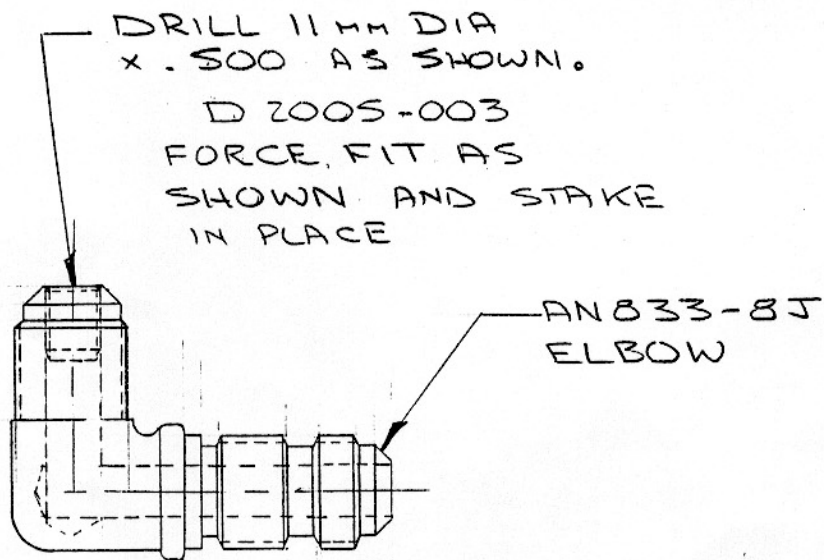 DRILL 11 MM DIA
x .500 AS SHOWN.
D 2005-003
FORCE FIT AS
SHOWN AND STAKE
IN PLACE
AN833-8J
ELBOW